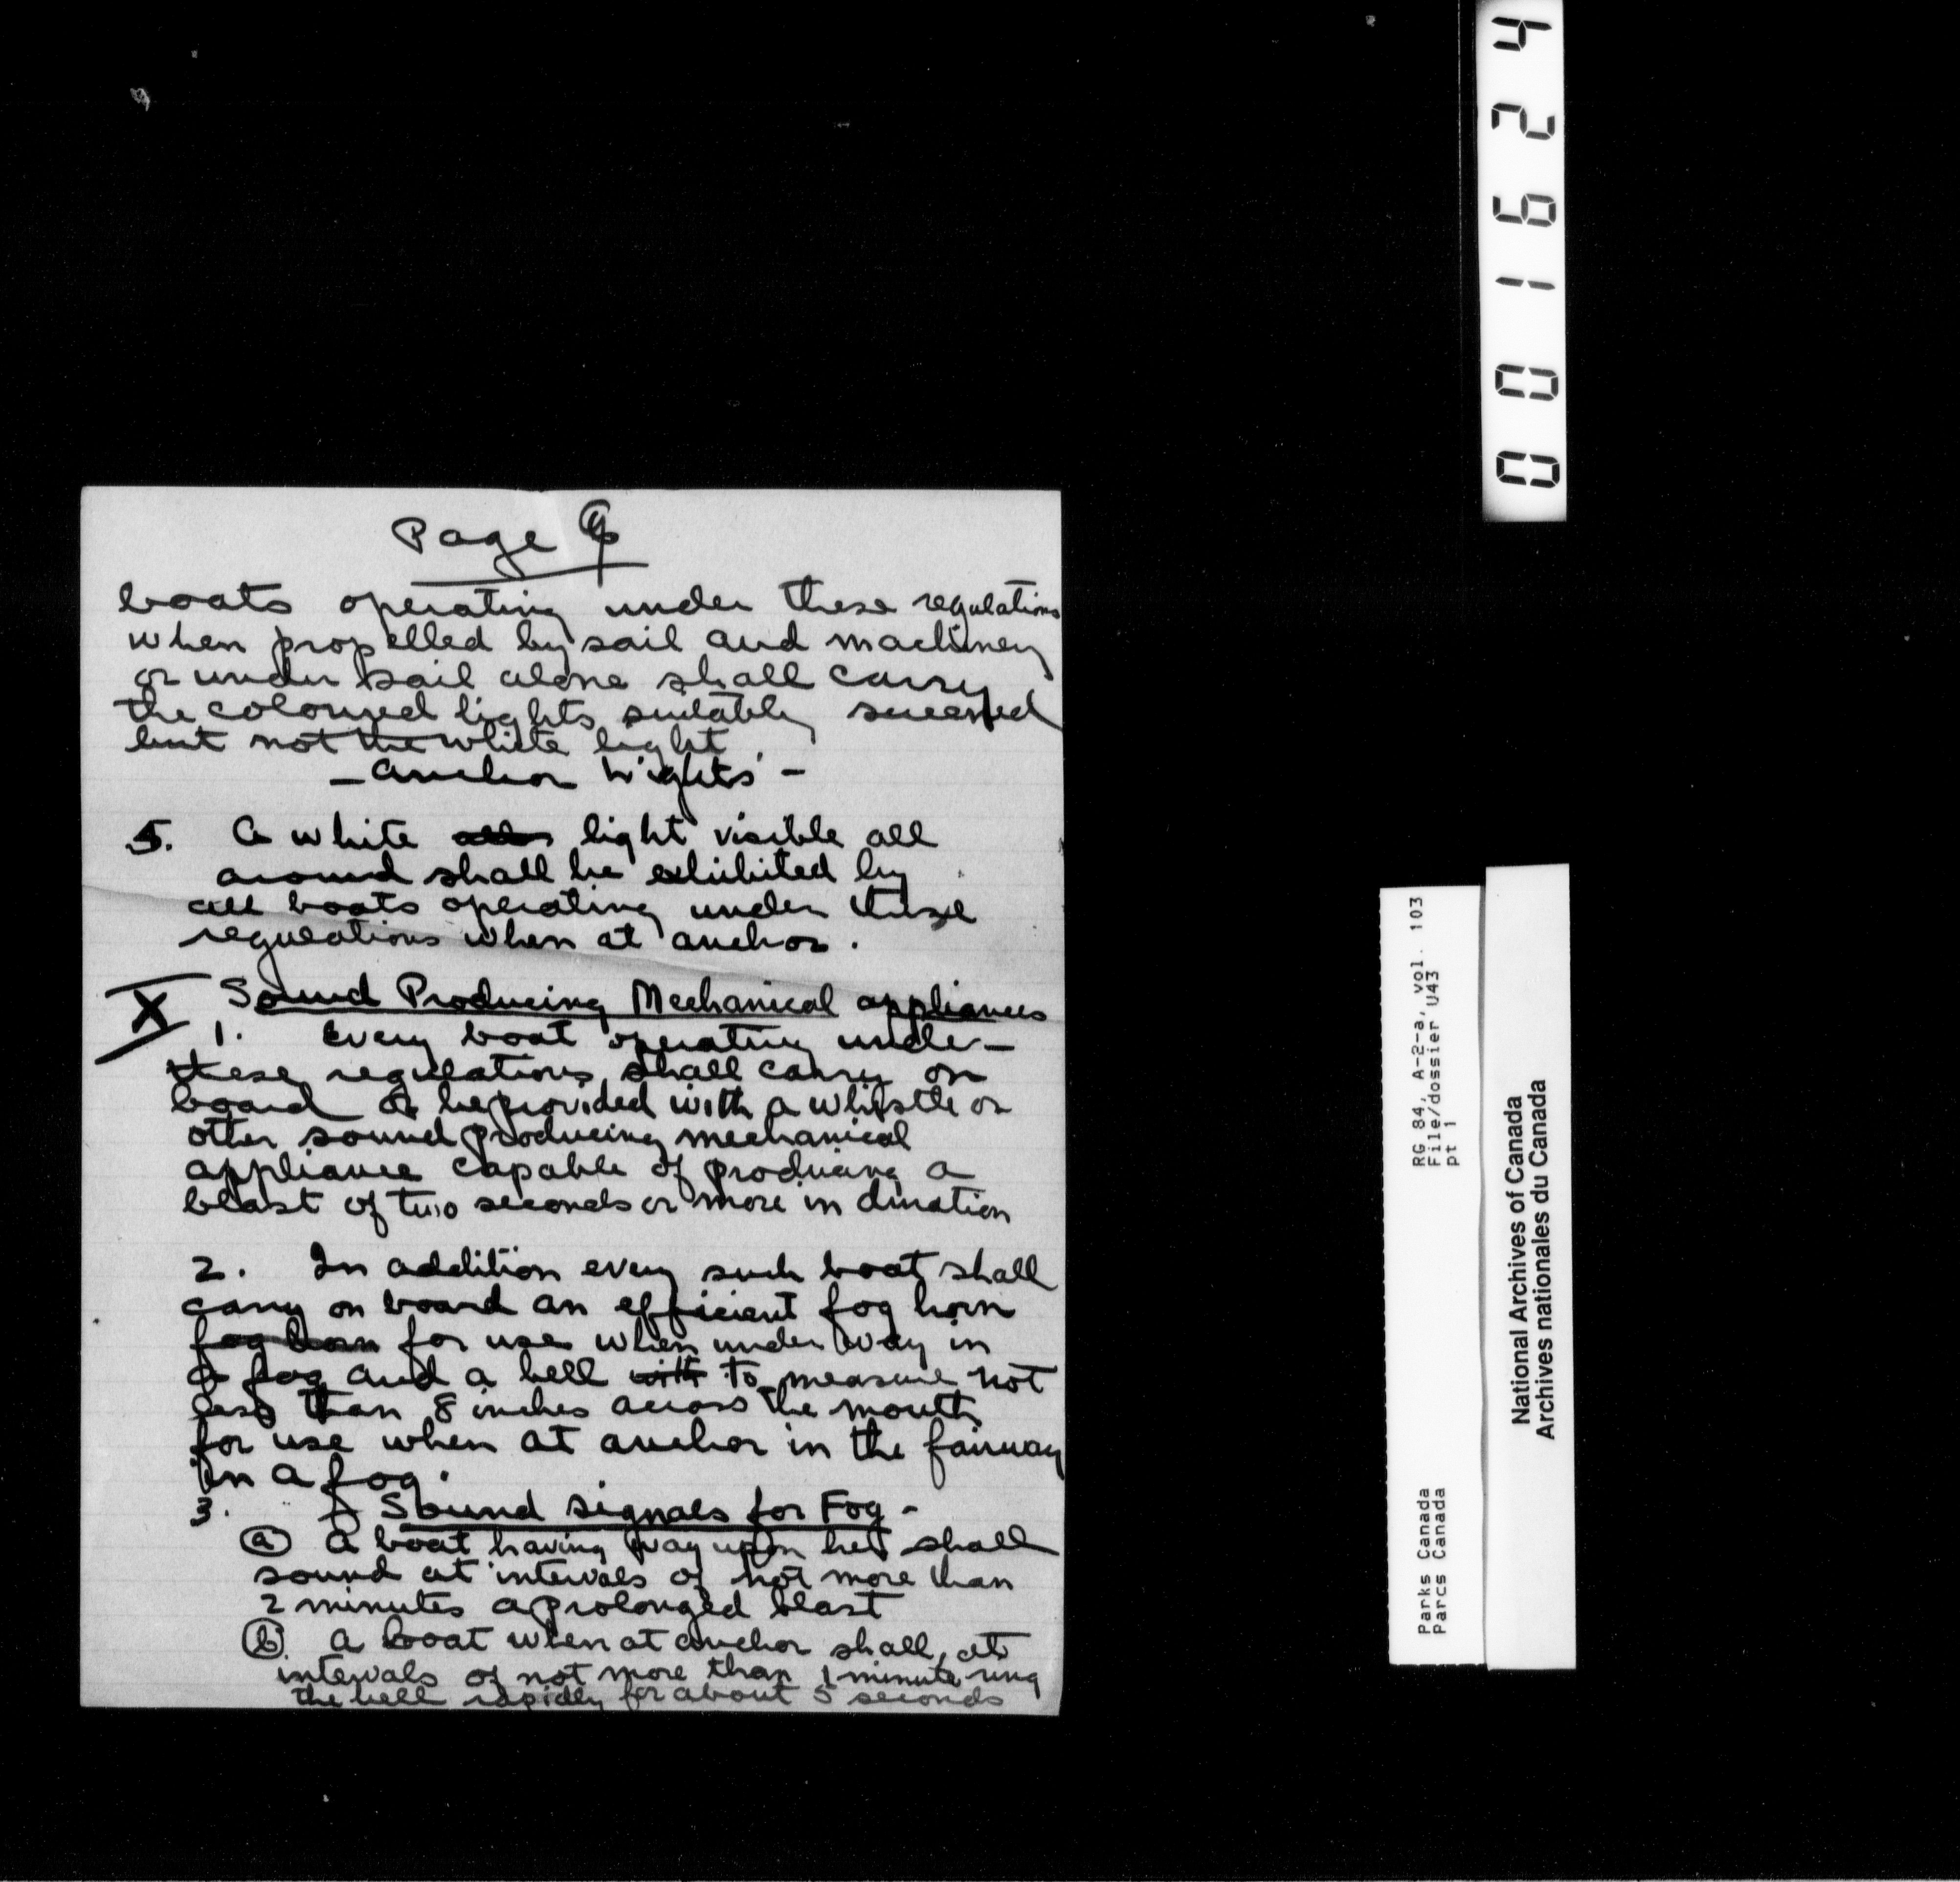 Page 9
boats operating under these regulations
when propelled by sail and machinery
or under sail alone shall carry
the coloured lights suitably screened
but not the white light.
- Anchor Lights -
5. A white light visible all
around shall be exhibited by
all boats operating under these
regulations when at anchor.
X Sound Producing Mechanical appliances
1. Every boat operating under
these regulations shall carry on
board or be provided with a whistle or
other sound producing mechanical
appliance capable of producing a
blast of two seconds or more in duration
2. In addition every such boat shall
carry on board an efficient fog horn
fog horn for use when under way in
a fog and a bell with to measure not
less than 8 inches across the mouth
for use when at anchor in the fairway
in a fog.
3. Sound signals for Fog -
(a) A boat having way upon her shall
sound at intervals of not more than
2 minutes a prolonged blast
(b) A boat when at anchor shall, at
intervals of not more than 1 minute ring
the bell rapidly for about 5 seconds
001624
RG 84, A-2-a, vol. 103
File/dossier U43
pt 1
Parks Canada
Parcs Canada
National Archives of Canada
Archives nationales du Canada